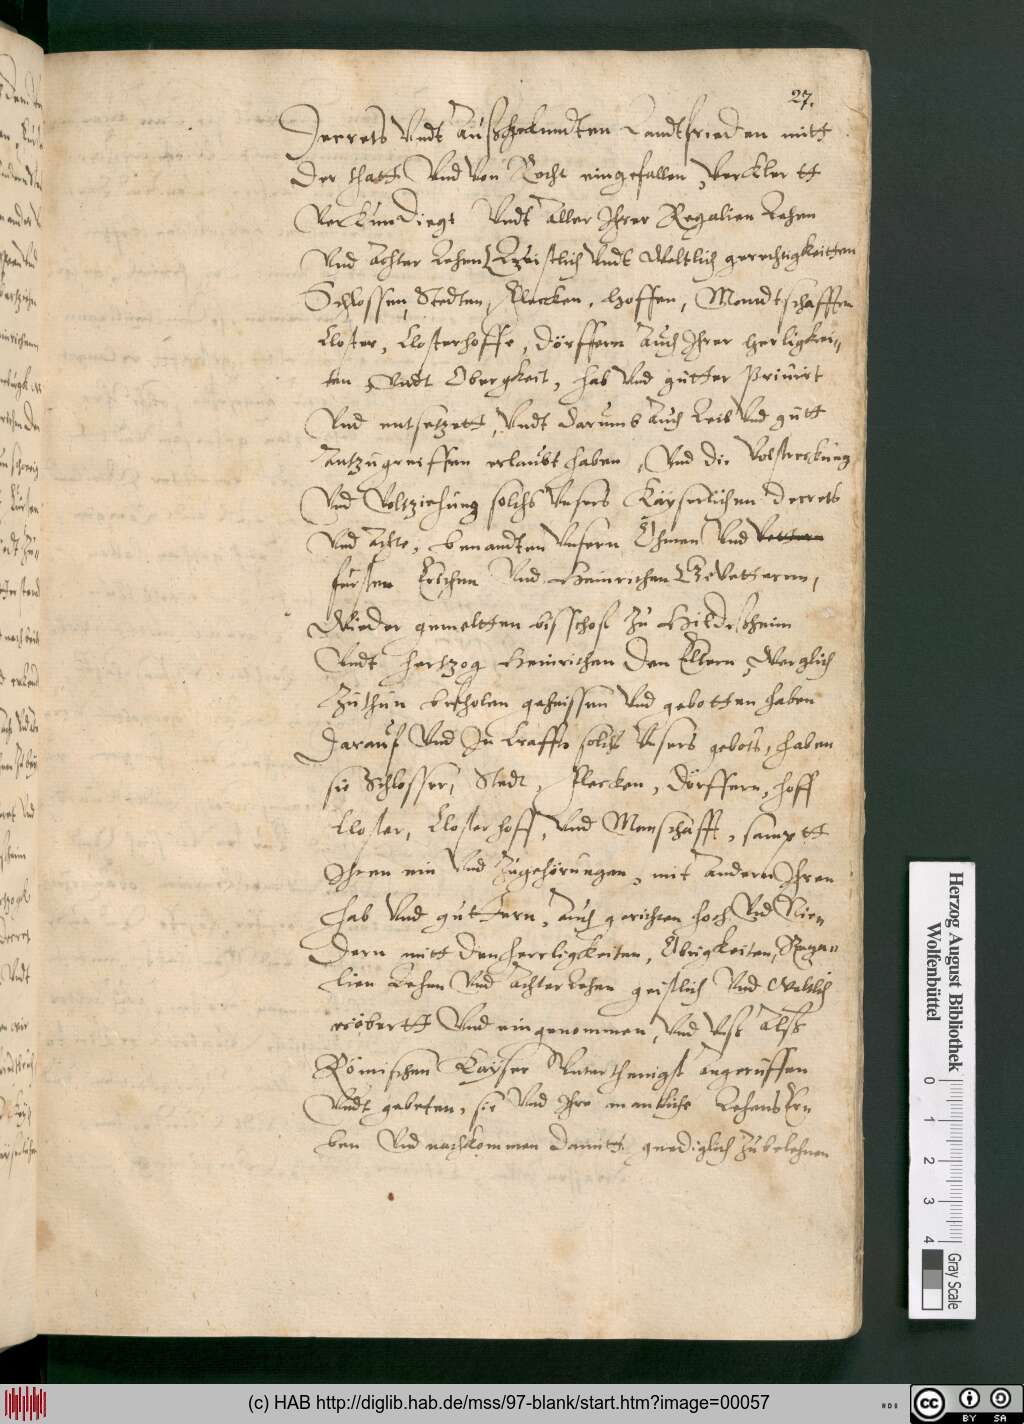 27.
Decrets Vndt Außgekundten Landtfrieden mitt
Der thatt Vnd von Recht eingefallen, Verklertt
Verkundiegt Vndt aller Ihrer Regalien Lehen
Vnd achter Lehen Geistlich Vndt Weltlich gerechtigkeitten
Schlossen, Stedten, Flecken, Hoffen, Mandtschafften
Closter, Closterhoffe, Dörffern auch Ihrer herligkei„
ten, Vndt Obergkeit, hab Vnd gutter Priuirt
Vnd entsetzett, Vndt darumb auch Leib Vnd gutt
antzugreiffen erlaubt haben, Vnd die Volstreckung
Vnd Voltziehung solchs Vnsers Kayserlichen decrets
Vnd achte, benandten Vnsern Öhmen Vnd Vettern
fursten Erichen Vnd Heinrichen Gevetteren,
Wieder gemeltten bisschof zu Hildesheim
Vndt Hertzog Heinrichen den Eltern, Werglich
Zuthun befholen geheissen Vnd gebotten haben
Darauf Vnd In krafft solchs Vnsers gebots, haben
sie Schlosser, Stedt, Flecken, Dörffern, hoff
Closter, Closterhoff, Vnd Manschafft, samptt
Ihren ein Vnd Zugehörungen, mit andern Ihren
hab Vnd guttern, auch gerichten hoch Vnd Nien
Dern mitt den herrligckeiten, Öbrigkeiten, Rega„
lien Lehen Vnd achter Lehen geistlich Vnd Weltlich
erobertt Vnd eingenommen, Vnd Vnß alß
Römischen Kayser Vnterthenigst angeruffen
Vndt gebeten, sie Vnd Ihre manliche Lehens Er
ben Vnd nachkommen damitt gnediglich Zubelehnen
Herzog August Bibliothek
Wolfenbüttel
0 1 2 3 4
Gray Scale
(c) HAB http://diglib.hab.de/mss/97-blank/start.htm?image=00057
cc BY SA